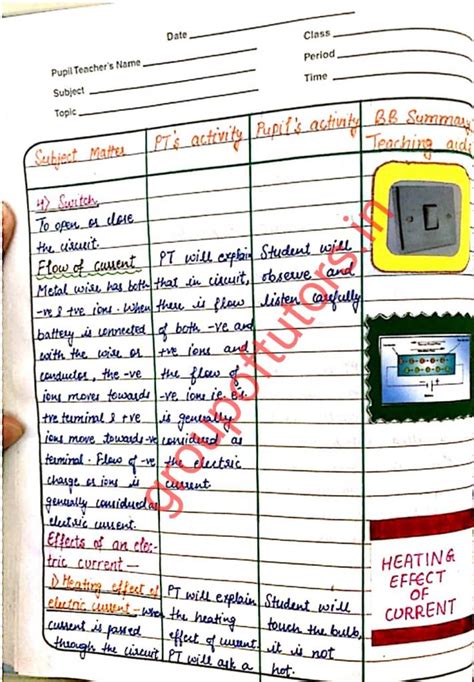 Date
Class
Pupil Teacher's Name
Period
Subject
Time
Topic
Subject Matter
PT's activity
Pupil's activity
BB Summary
Teaching aids
4) Switch
To open or close
the circuit.
Flow of current
Metal wire has both
-ve & +ve ions. When
battery is connected
with the wire or
conductor, the -ve
ions moves towards
+ve terminal & +ve
ions move towards -ve
terminal. Flow of -ve
charge or ions is
generally considered as
electric current.
Effects of an elec-
tric current -
1) Heating effect of
electric current - when
current is passed
through the circuit
PT will explain
that in circuit,
there is flow
of both -ve and
+ve ions and
the flow of
-ve ions i.e. e's
is generally
considered as
the electric
current
PT will explain
the heating
effect of current.
PT will ask a
Student will
observe and
listen carefully
Student will
touch the bulb,
it is not
hot.
HEATING
EFFECT
OF
CURRENT
groupoftutors.in